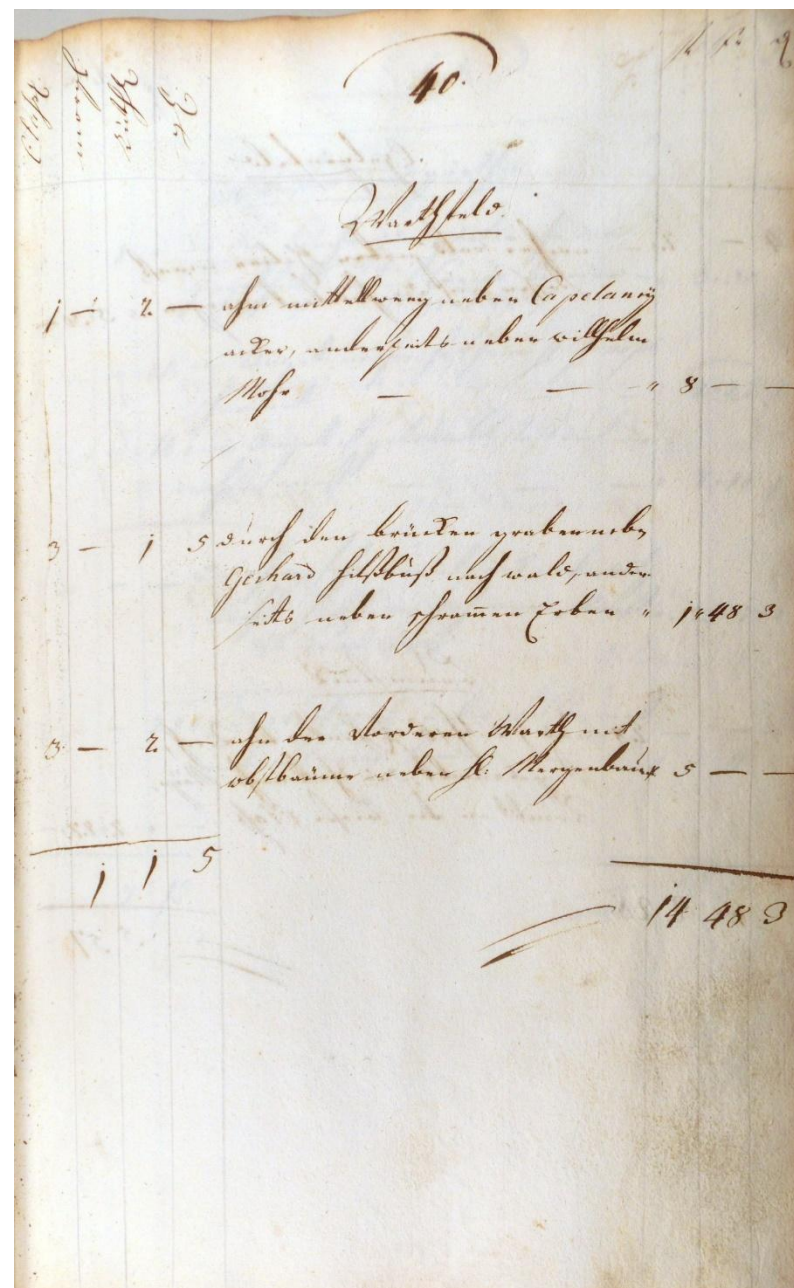 40.
Warthfeld.
1 — 2 — ahm mittellweeg neben Capelaney
acker, anderseits neben willhelm
Mohr — — " 8 — —
3 — 1 5 durch den brücken graben neben
Gerhard hilßbuß nach wald, ander-
seits neben schrammen Erben " 1 " 48 3
3 — 2 — ahn der Vorderen Warth mit
obstbäume neben H: Mergenbaum 5 — —
1 1 5
14 48 3